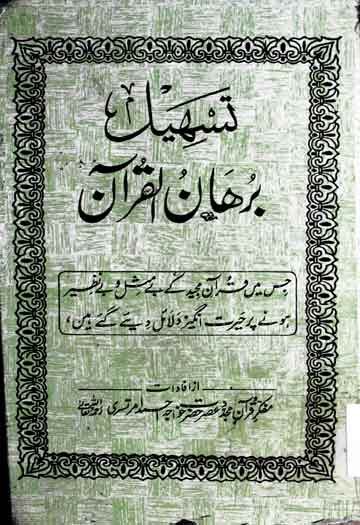 تسہیل
برھان القرآن
جس میں قرآن مجید کے بے مثل و بے نظیر
ہونے پر حیرت انگیز دلائل دیئے گئے ہیں،
از افادات
مفکر قرآن مجدد عصر حضرت خواجہ احمد امرتسری رحمۃ اللہ علیہ